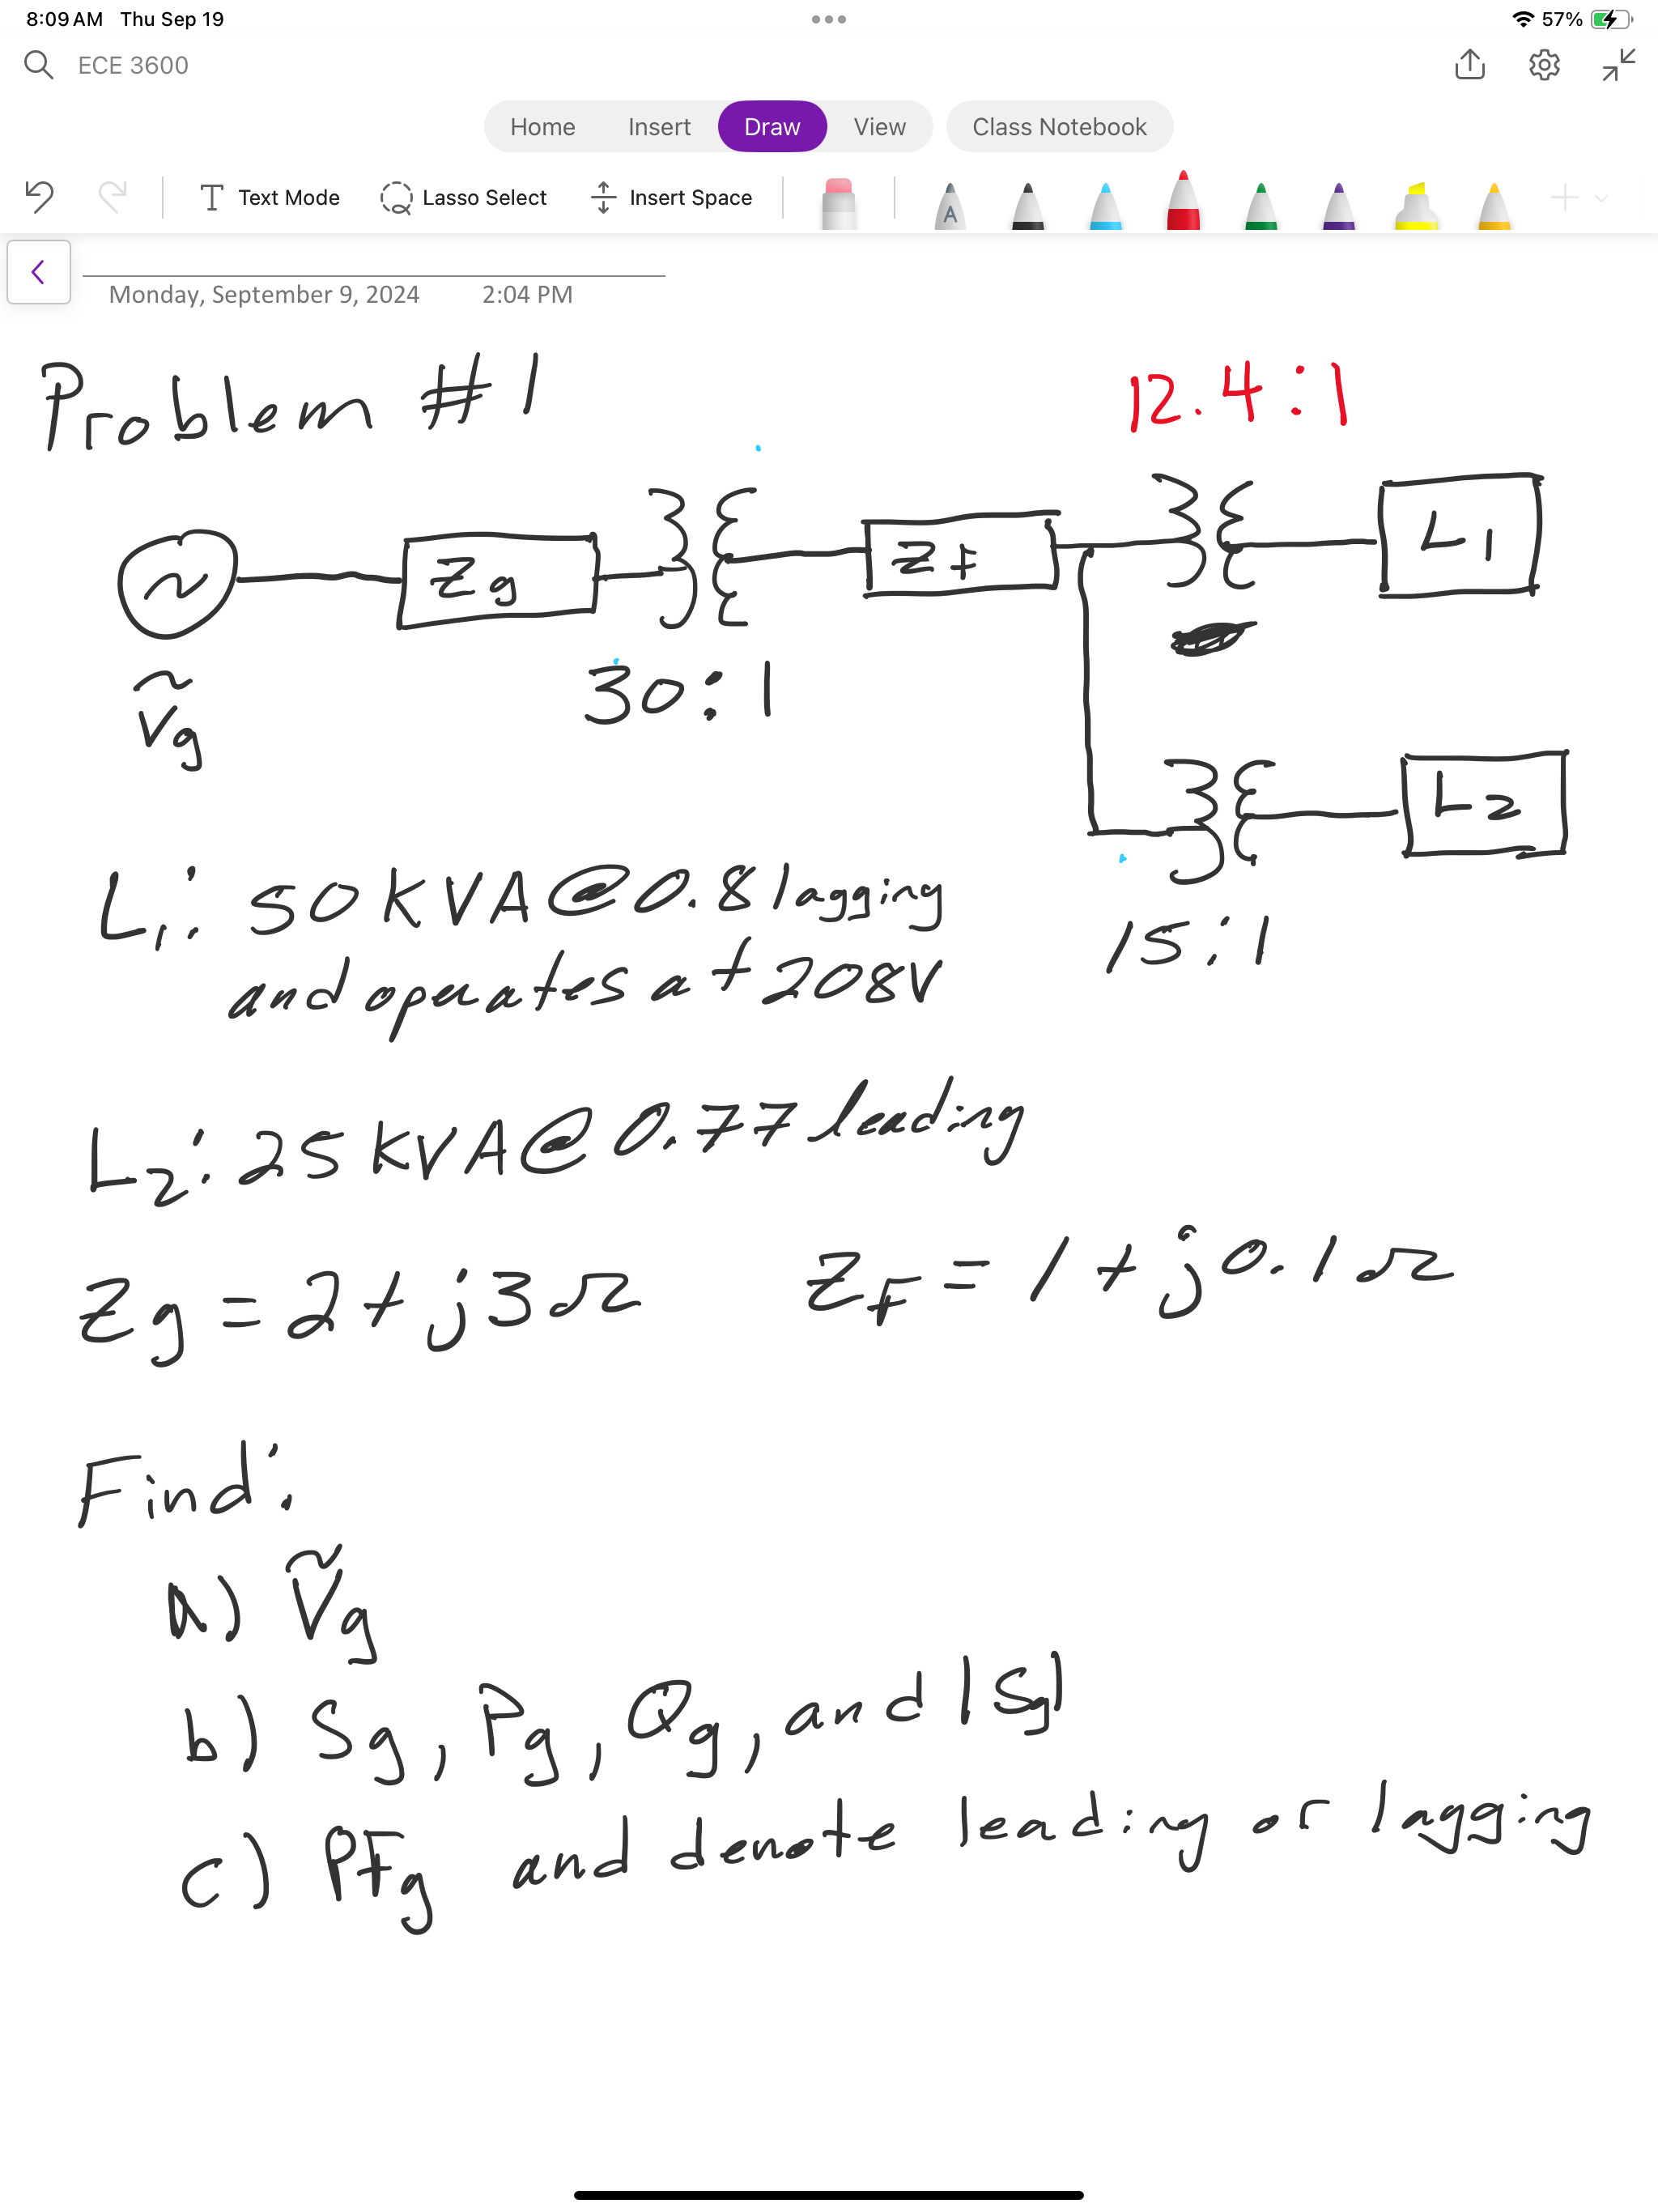 8:09 AM Thu Sep 19
57%
ECE 3600
Home Insert Draw View Class Notebook
Text Mode Lasso Select Insert Space
A
Monday, September 9, 2024 2:04 PM
Problem #1
12.4:1
~ Zg ZF L1
Ṽg
30:1
L2
15:1
L1: 50 KVA @ 0.8 lagging
and operates at 208V
L2: 25 KVA @ 0.77 leading
Zg = 2 + j3Ω ZF = 1 + j0.1Ω
Find:
a) Ṽg
b) Sg, Pg, Qg, and |Sg|
c) PFg and denote leading or lagging